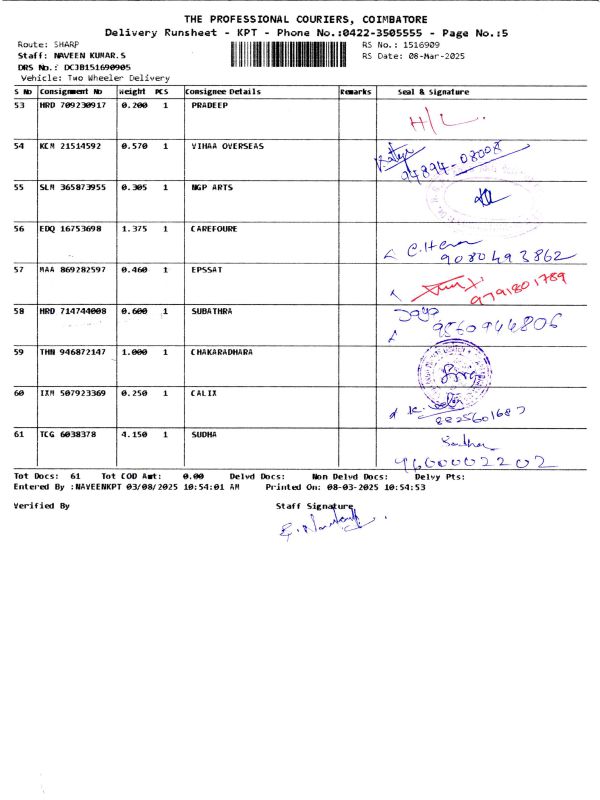 THE PROFESSIONAL COURIERS, COIMBATORE
Delivery Runsheet - KPT - Phone No.:0422-3505555 - Page No.:5
Route: SHARP
RS No.: 1516909
Staff: NAVEEN KUMAR.S
RS Date: 08-Mar-2025
DRS No.: DCJB151690905
Vehicle: Two Wheeler Delivery
S No Consignment No Weight PCS Consignee Details Remarks Seal & Signature
53 HRD 709230917 0.200 1 PRADEEP H/L
54 KCM 21514592 0.570 1 VIHAA OVERSEAS 94894-08008
55 SLM 365873955 0.305 1 NGP ARTS
56 EDQ 16753698 1.375 1 CAREFOURE 9080493862
57 MAA 869282597 0.460 1 EPSSAT 9791801789
58 HRD 714744008 0.600 1 SUBATHRA Jaya 9860944806
59 THN 946872147 1.000 1 CHAKARADHARA
60 IXM 507923369 0.250 1 CALIX 8825601687
61 TCG 6038378 4.150 1 SUDHA Sudha 9600002202
Tot Docs: 61 Tot COD Amt: 0.00 Delvd Docs: Non Delvd Docs: Delvy Pts:
Entered By :NAVEENKPT 03/08/2025 10:54:01 AM Printed On: 08-03-2025 10:54:53
Verified By Staff Signature